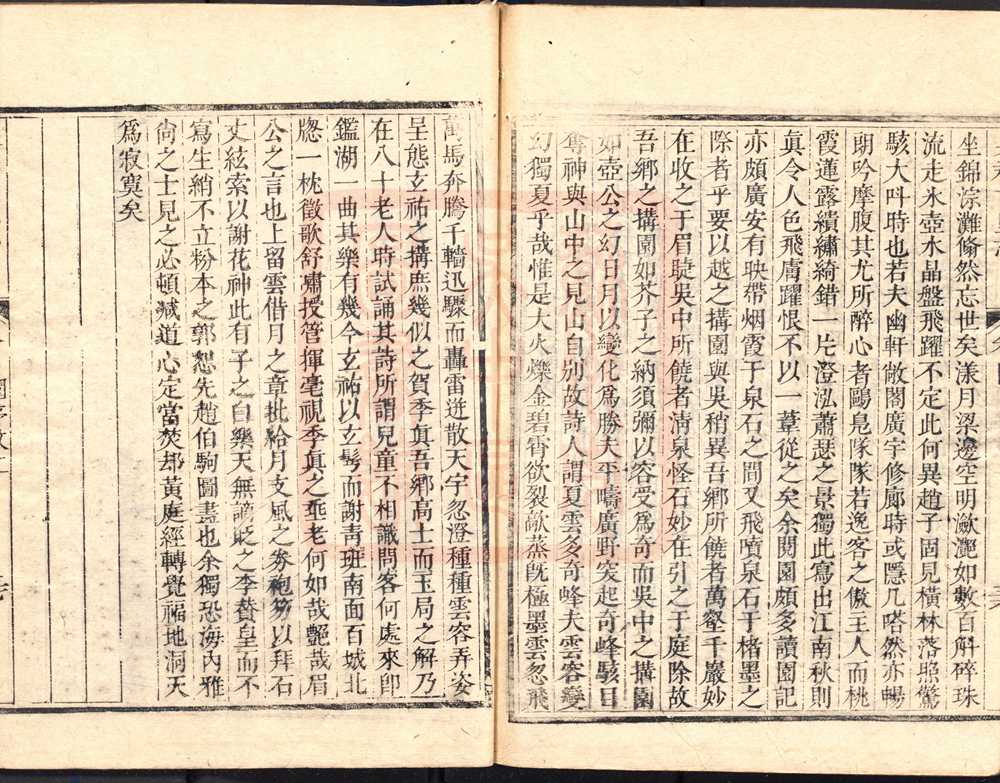 坐錦淙灘翛然忘世矣漾月梁邊空明瀲灧如數百解碎珠
流走氷壺水晶盤飛躍不定此何異趙子固見橫林落照驚
駭大呌時也若夫幽軒敞閣廣宇修廊時或隱几嗒然亦暢
朗吟摩腹其尤所醉心者鷗鳬隊隊若逸客之傲王人而桃
霞蓮露繢繡綺錯一片澄泓蕭瑟之景獨此寫出江南秋則
眞令人色飛膚躍恨不以一葦從之矣余閱園頗多讀園記
亦頗廣安有映帶烟霞于泉石之間又飛噴泉石于楮墨之
際者乎要以越之搆園與吳稍異吾鄉所饒者萬壑千巖妙
在收之于眉睫吳中所饒者淸泉怪石妙在引之于庭除故
吾鄉之搆園如芥子之納須彌以容受爲奇而吳中之搆園
如壺公之幻日月以變化爲勝夫平疇廣野突起奇峰駭目
奪神與山中之見山自别故詩人謂夏雲多奇峰夫雲容變
幻獨夏乎哉惟是大火爍金碧霄欲裂歊蒸旣極墨雲忽飛
萬馬奔騰千轤迅驟而轟雷迸散天宇忽澄種種雲容弄姿
呈態玄祐之搆庶幾似之賀季眞吾鄉高士而玉局之解乃
在八十老人時試誦其詩所謂兒童不相識問客何處來卽
鑑湖一曲其樂有幾今玄祐以玄髩而謝靑班南面百城北
牕一枕徵歌舒嘯授管揮毫視季眞之乖老何如哉艷哉眉
公之言也上留雲借月之章批給月支風之券袍笏以拜石
丈絃索以謝花神此有子之白樂天無謫貶之李贊皇而不
寫生綃不立粉本之郭恕先趙伯駒圖畫也余獨恐海內雅
尙之士見之必頓減道心定當焚却黃庭經轉覺福地洞天
爲寂寞矣